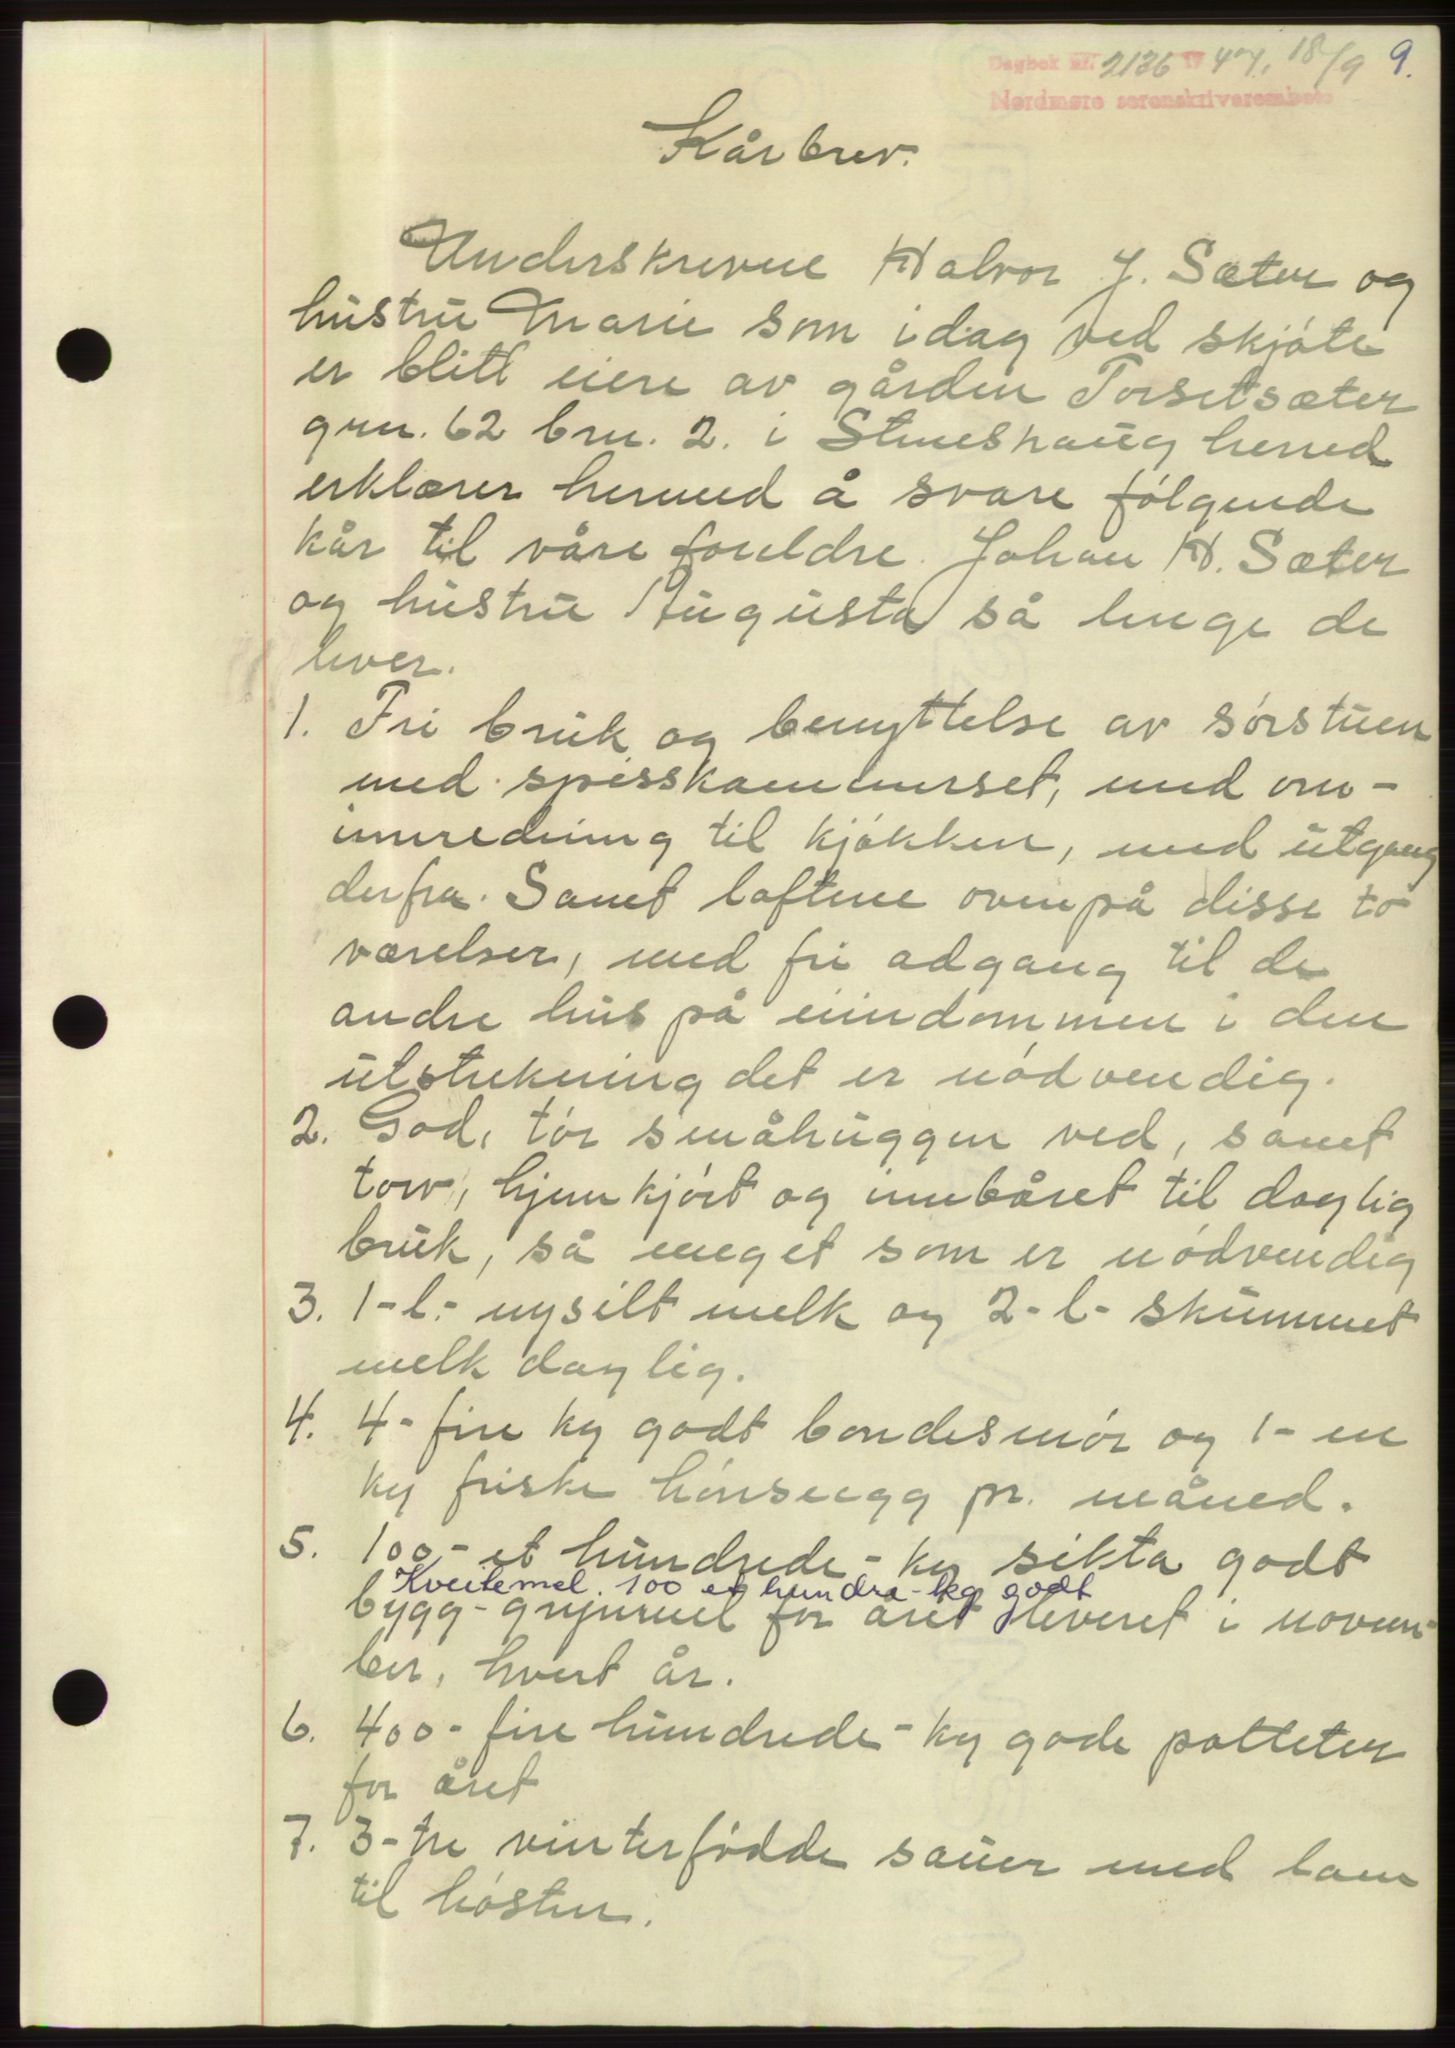 Dagbok nr. 2136 1947, 18/9 9.
Nordmøre sorenskriverembete
Kårbrev.
Underskrevne Halvor J. Sæter og
hustru Marie som idag ved skjøte
er blitt eiere av gården Torsetsæter
grn. 62 brn. 2. i Stueshaug herred
erklærer hermed å svare følgende
kår til våre foreldre. Johan H. Sæter
og hustru Augusta så lenge de
lever.
1. Fri bruk og benyttelse av sørstuen
med spisskammerset, med om-
innredning til kjøkken, med utgang
derfra. Samt loftene ovenpå disse to
værelser, med fri adgang til de
andre hus på eiindommen i den
utstrekning det er nødvendig.
2. God, tør småhuggen ved, samt
torv, hjemkjørt og innbåret til daglig
bruk, så meget som er nødvendig
3. 1-l.- nysilt melk og 2-l- skummet
melk daglig.
4. 4-fire kg godt bondesmør og 1-en
kg friske hønseegg pr. måned.
5. 100-et hundrede-kg sikta godt
Kveitemel. 100 et hundra-kg godt
bygg-grynmel for året leveret i novem-
ber, hvert år.
6. 400-fire hundrede-kg gode potteter
for året
7. 3-tre vinterfødde sauer med lam
til høsten.